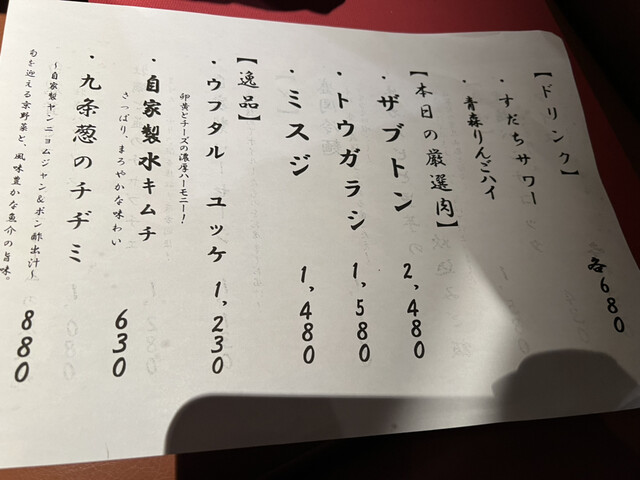 【ドリンク】
・すだちサワー
各680
・青森りんごハイ
【本日の厳選肉】
・ザブトン 2,480
・トウガラシ 1,580
・ミスジ 1,480
【逸品】
・ウフタル ユッケ 1,230
卵黄とチーズの濃厚ハーモニー!
・自家製水キムチ 630
さっぱり、まろやかな味わい
・九条葱のチヂミ 880
~自家製ヤンニョムジャン&ポン酢出汁~
旬を迎える京野菜と、風味豊かな魚介の旨味。